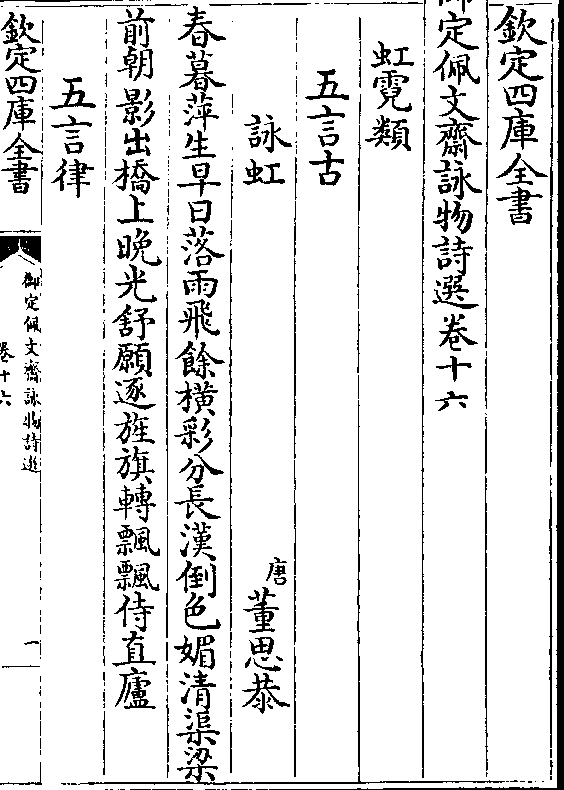 欽定四庫全書
御定佩文齋詠物詩選卷十六
虹霓類
五言古
詠虹 唐董思恭
春暮萍生早日落雨飛餘橫彩分長漢倒色媚清渠梁
前朝影出橋上晚光舒願逐旌旗轉飄飄侍直廬
五言律
欽定四庫全書
御定佩文齋詠物詩選
卷十六
一